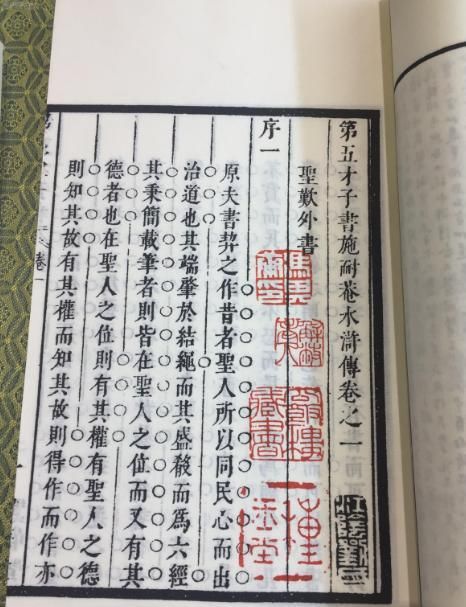 第五才子書施耐菴水滸傳卷之一
聖歎外書
序一
原夫書契之作昔者聖人所以同民心而出
治道也其端肇於結繩而其盛殽而爲六經
其秉簡載筆者則皆在聖人之位而又有其
德者也在聖人之位則有其權有聖人之德
則知其故有其權而知其故則得作而作亦